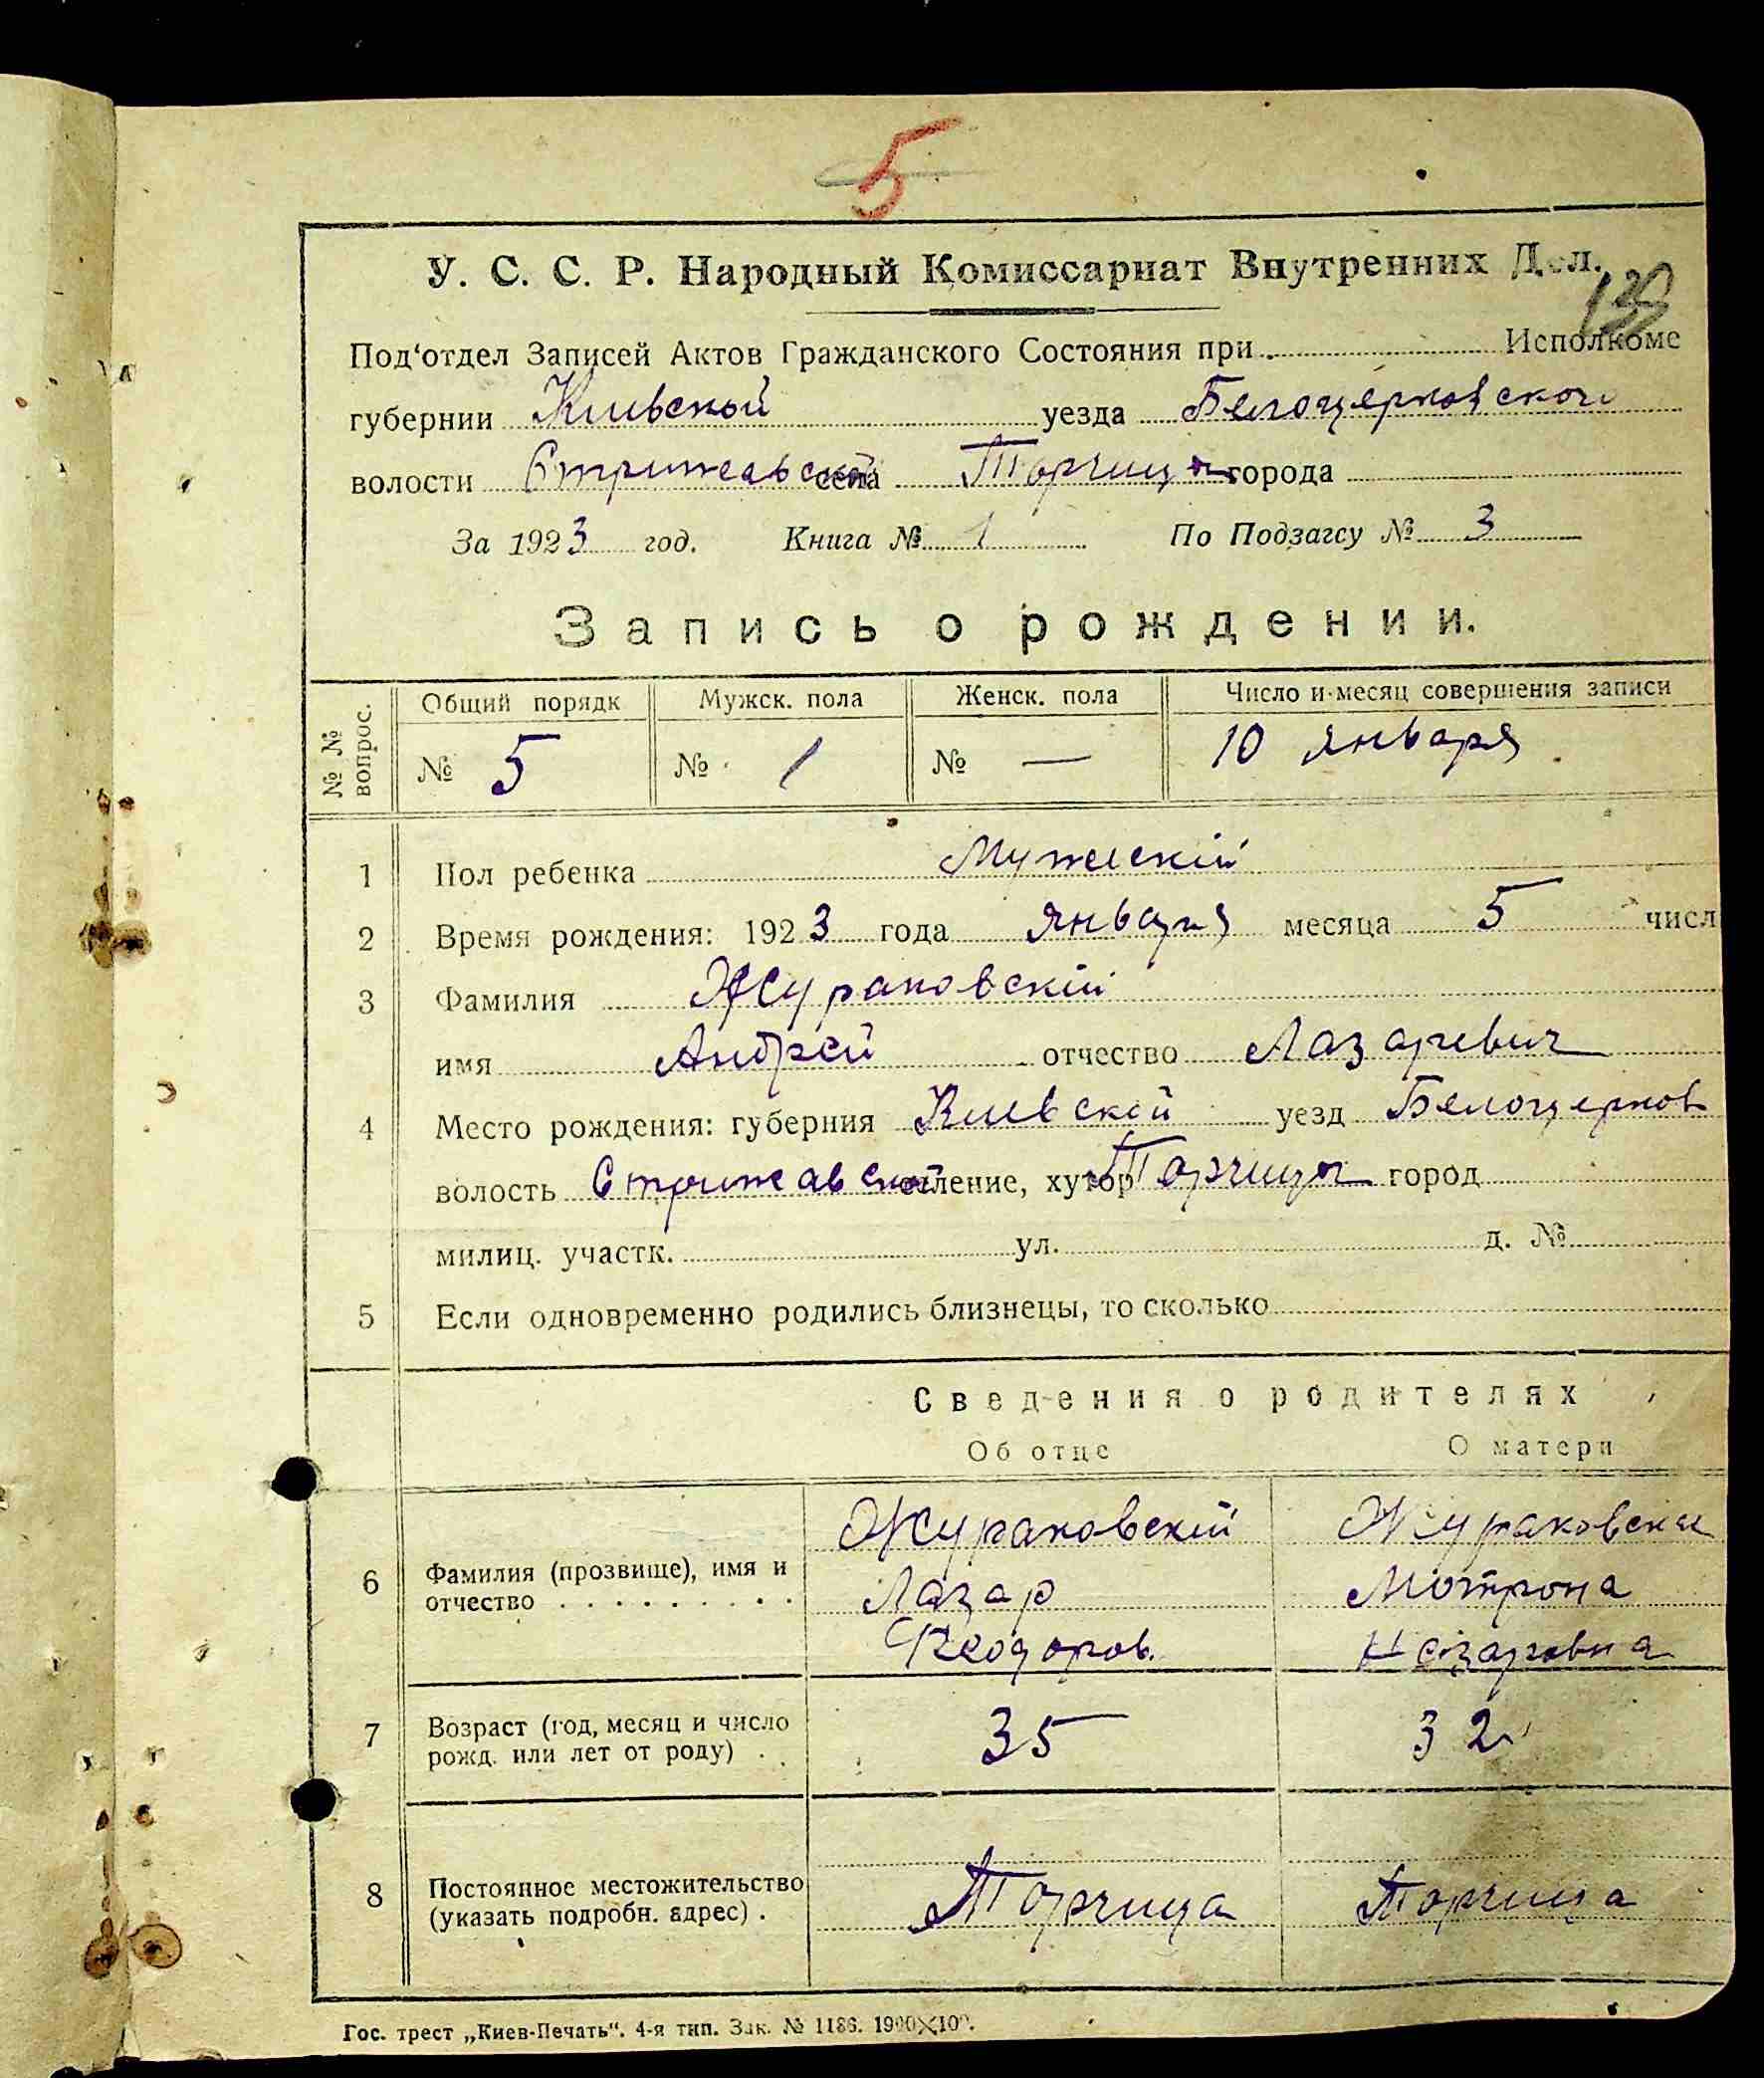 5
У. С. С. Р. Народный Комиссариат Внутренних Дел.
Под‘отдел Записей Актов Гражданского Состояния при Исполкоме
губернии Киевской уезда Белоцерковского
волости Стрижавской села Торчица города
За 1923 год. Книга № 1 По Подзагсу № 3
Запись о рождении.
№ № вопрос. Общий порядк Мужск. пола Женск. пола Число и месяц совершения записи
№ 5 № 1 № — 10 января
1 Пол ребенка Мужескій
2 Время рождения: 1923 года января месяца 5 числ
3 Фамилия Жураковскій
имя Андрей отчество Лазаревич
4 Место рождения: губерния Киевской уезд Белоцерков
волость Стрижавской селение, хутор Торчица город
милиц. участк. ул. д. №
5 Если одновременно родились близнецы, то сколько
Сведения о родителях
Об отце О матери
Жураковскій Жураковская
6 Фамилия (прозвище), имя и отчество Лазар Мотрона
Феодоров. Назаровна
7 Возраст (год, месяц и число рожд. или лет от роду) 35 32
8 Постоянное местожительство (указать подробн. адрес) Торчица Торчица
Гос. трест „Киев-Печать“. 4-я тип. Зак. № 1186. 1900×100.